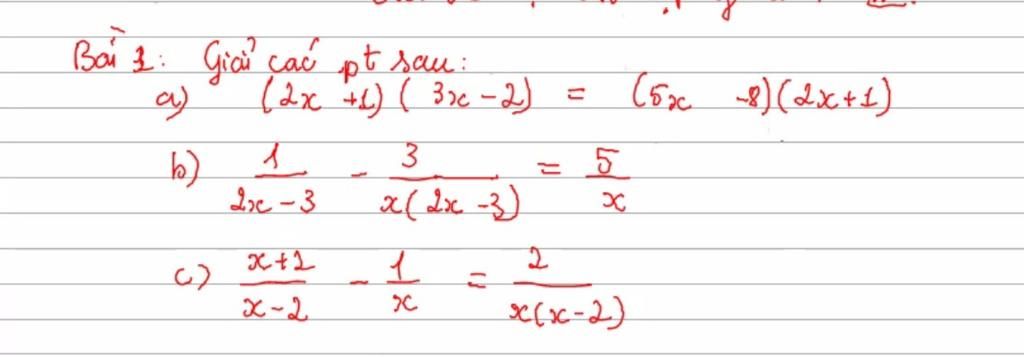 Bài 1: Giải các pt sau:
a) (2x + 1)(3x - 2) = (5x - 8)(2x + 1)
b) 1/(2x - 3) - 3/(x(2x - 3)) = 5/x
c) (x + 2)/(x - 2) - 1/x = 2/(x(x - 2))